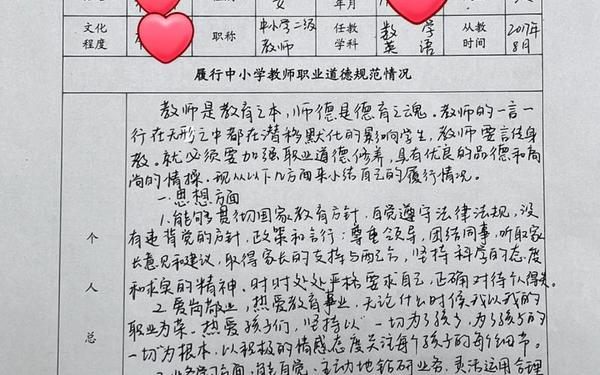 女 年月
文化程度 职称 中小学二级教师 任教学科 数学 英语 从教时间 2017年8月
履行中小学教师职业道德规范情况
个人总
教师是教育之本,师德是德育之魂。教师的一言一
行在无形之中都在潜移默化的影响学生,教师要言传身
教。就必须要加强职业道德修养,具有优良的品德和高
尚的情操。现从以下几方面来小结自己的履行情况。
一.思想方面
1.能够贯彻国家教育方针,自觉遵守法律法规,没
有违背党的方针,政策和言行;尊重领导,团结同事,听取家
长意见和建议,取得家长的支持与配合,坚持科学的态度
和求实的精神,时时处处严格要求自己,正确对待个人得失。
2.爱岗敬业,热爱教育事业,无论什么时候我以我的
职业为荣。热爱孩子们,坚持以“一切为了孩子,为了孩子的
一切”为根本,以积极的情感态度关注每个孩子的每个细节。
3.业务学习方面,能自觉、主动地钻研业务,灵活运用合理